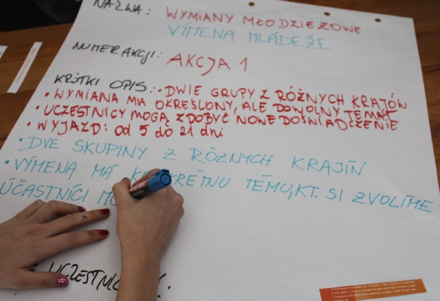 NAZWA: WYMIANY MŁODZIEŻOWE
VÝMENA MLÁDEŽE
NUMER AKCJI: AKCJA 1
KRÓTKI OPIS: • DWIE GRUPY Z RÓŻNYCH KRAJÓW
• WYMIANA MA OKREŚLONY, ALE DOWOLNY TEMAT
• UCZESTNICY MOGĄ ZDOBYĆ NOWE DOŚWIADCZENIE
• WYJAZD: od 5 do 21 dni
• DVE SKUPINY Z RÔZNYCH KRAJÍN
• VÝMENA MÁ KONKRÉTNU TÉMU, KT. SI ZVOLÍME
ÚČASTNÍCI